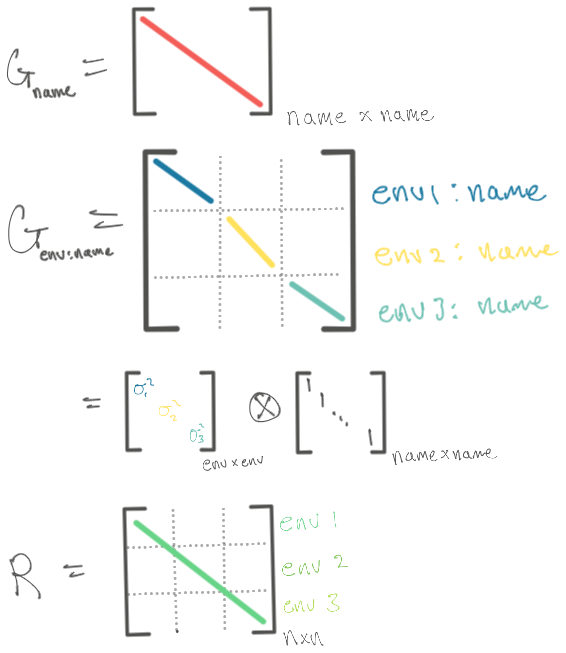 G name =
name x name
G env:name =
env1: name
env 2: name
env 3: name
= σ₁² σ₂² σ₃² env x env ⊗ 1 1 ⋱ 1 name x name
R =
env 1
env 2
env 3
n x n